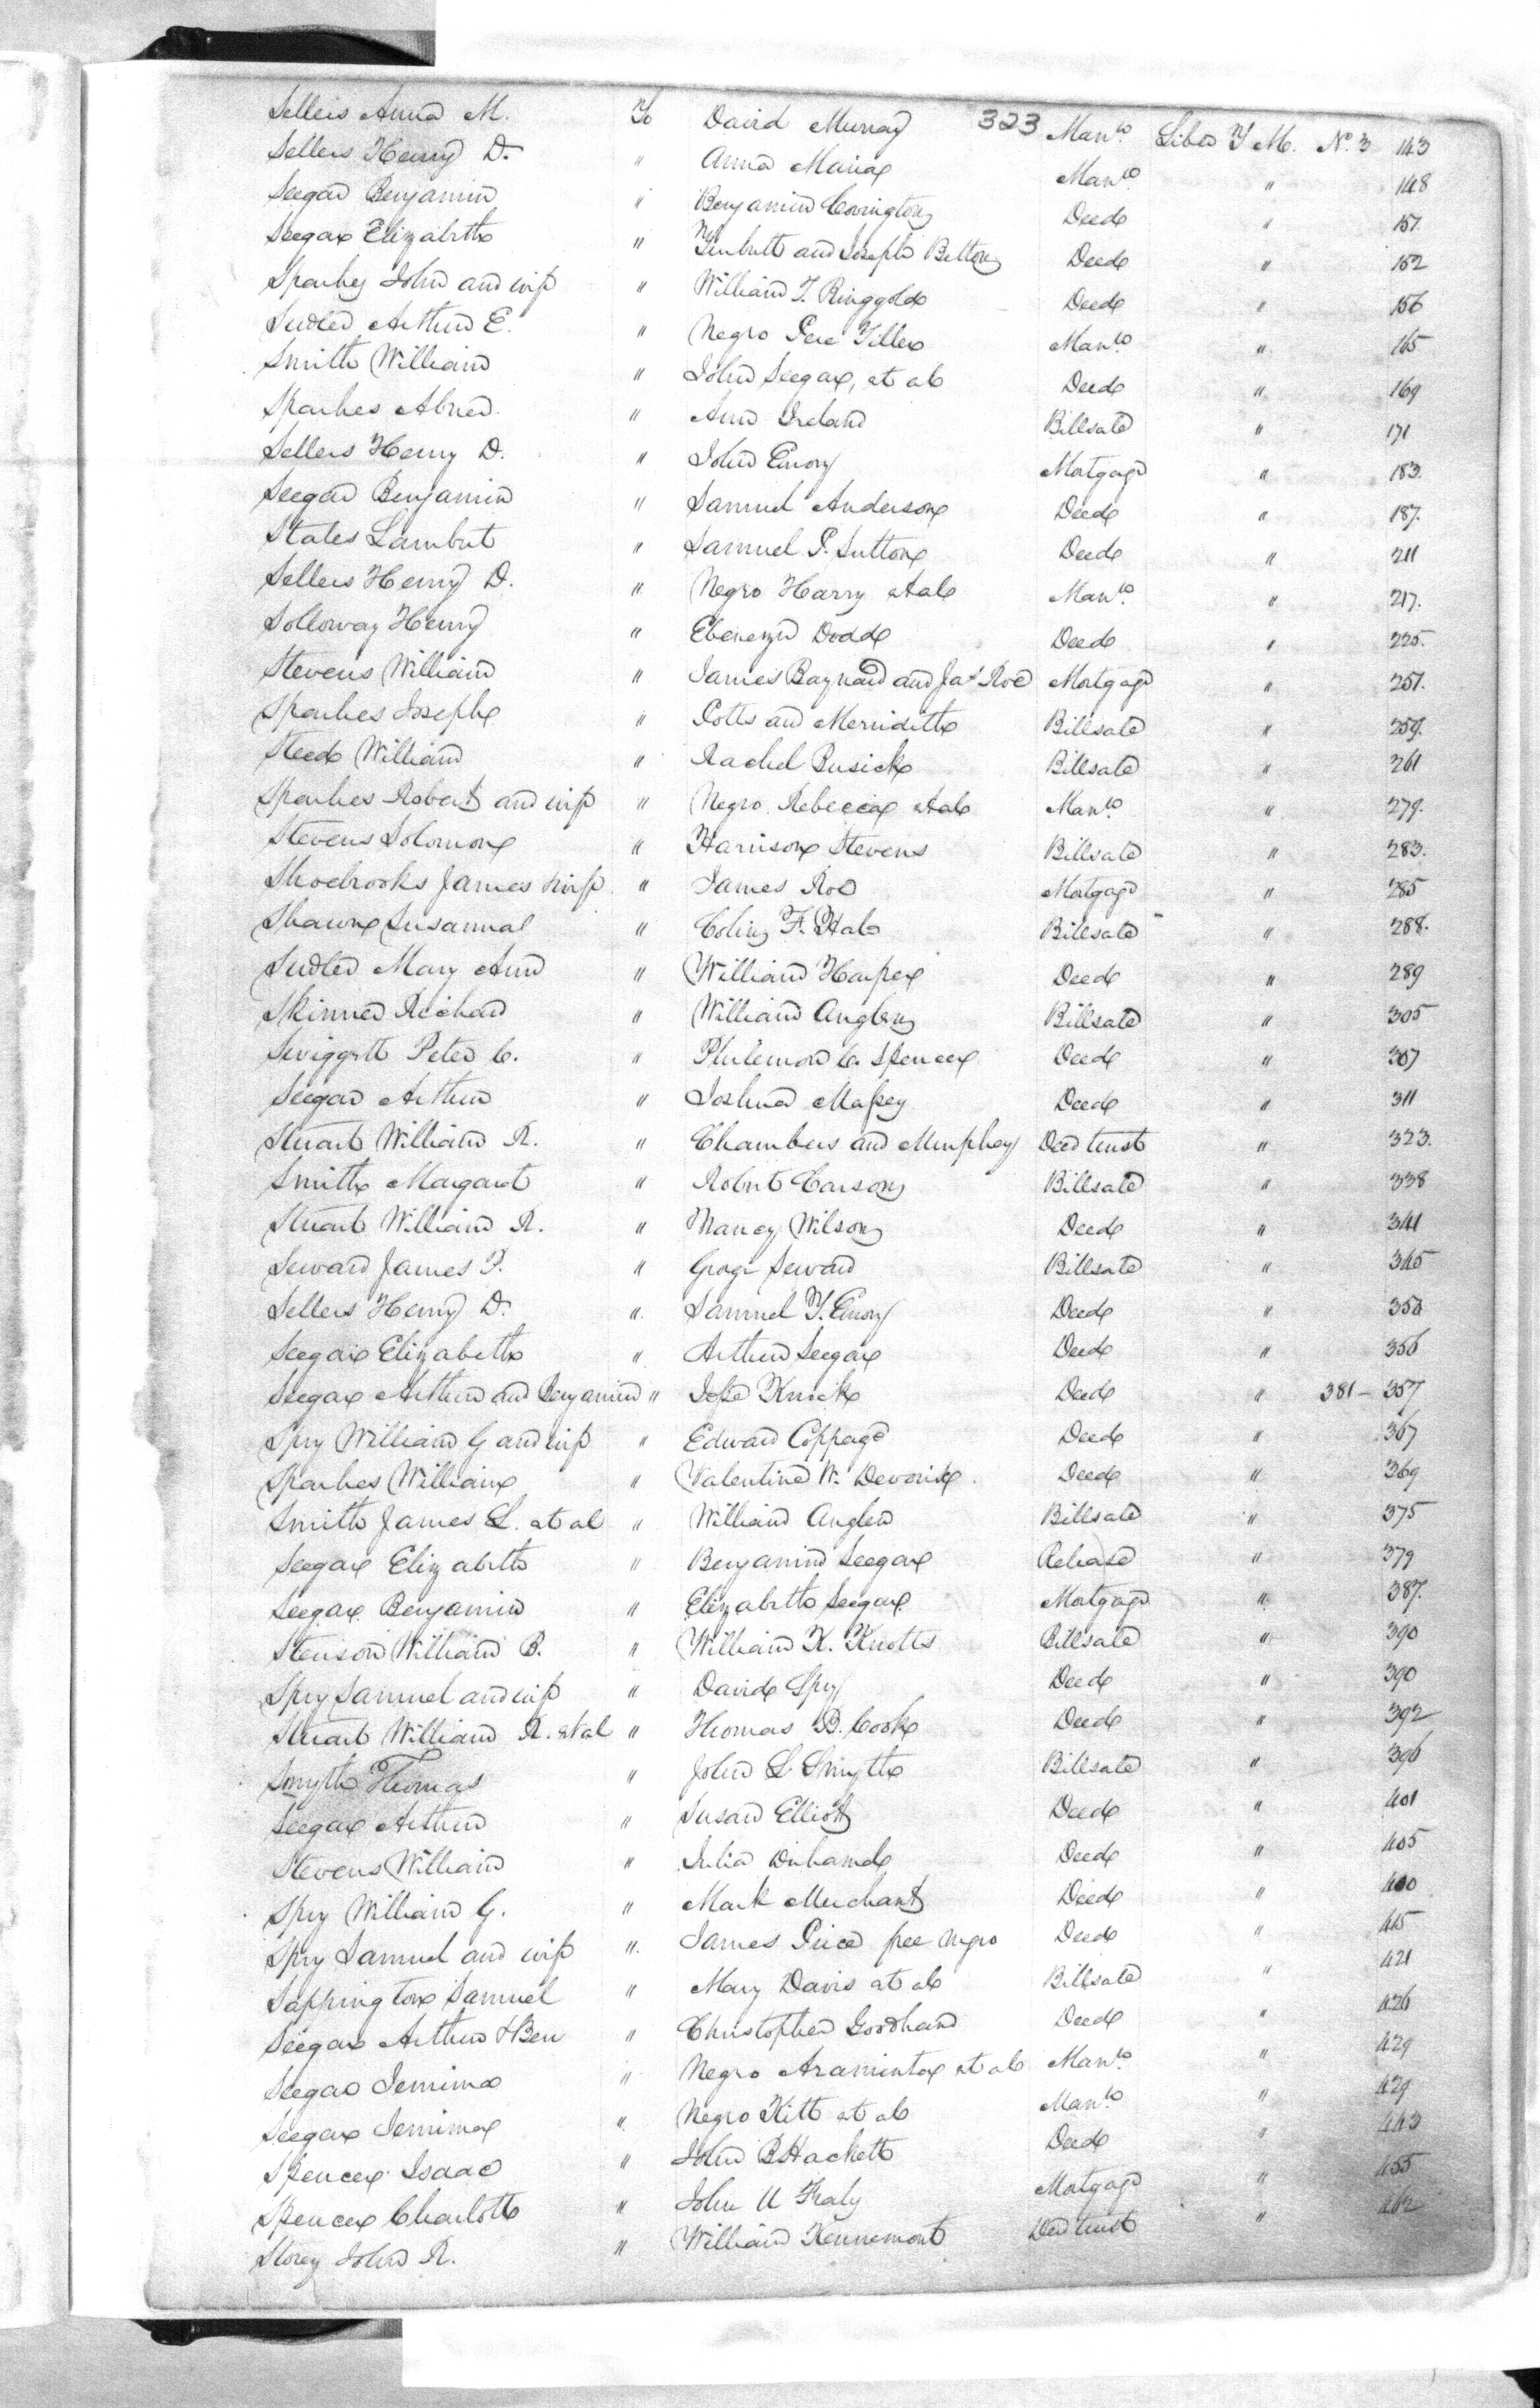 Sellers Anna M. To David Murray 323 Man.to Liber T M. No. 3 143
Sellers Henry D. " Anna Maria Man.to " 148
Seegar Benjamin " Benjamin Covington Deed " 151
Seegar Elizabeth " Turbutt and Joseph Betton Deed " 152
Sparks John and wife " William T. Ringgold Deed " 156
Sudler Arthur E. " Negro Pere Tiller Man.to " 165
Smith William " John Seegar, et al Deed " 169
Sparkes Abner " Ann Ireland Billsale " 171
Sellers Henry D. " John Emory Mortgage " 183.
Seegar Benjamin " Samuel Anderson Deed " 187.
States Lambert " Samuel P. Sutton Deed " 211
Sellers Henry D. " Negro Harry et al Man.to " 217.
Solloway Henry " Ebenezer Dodd Deed " 225.
Stevens William " James Baynard and Jas. Roe Mortgage " 251.
Sparkes Joseph " Potts and Merridith Billsale " 259.
Steed William " Rachel Busick Billsale " 261
Sparkes Robert and wife " Negro Rebecca et al Man.to " 279.
Stevens Solomon " Harrison Stevens Billsale " 283.
Shoebrooks James & wife " James Roe Mortgage " 285
Shawn Susannal " Colin F. Hale Billsale " 288.
Sudler Mary Ann " William Harper Deed " 289
Skinner Richard " William Anglen Billsale " 305
Swiggett Peter C. " Philemon C. Spencer Deed " 307
Seegar Arthur " Joshua Massey Deed " 311
Stuart William R. " Chambers and Murphey Deed trust " 323.
Smith Margaret " Robert Carson Billsale " 338
Stuart William R. " Nancy Wilson Deed " 341
Seward James P. " George Seward Billsale " 345
Sellers Henry D. " Samuel T. Emory Deed " 350
Seegar Elizabeth " Arthur Seegar Deed " 356
Seegar Arthur and Benjamin " Jesse Knock Deed " 381 - 357
Spry William G and wife " Edward Coppage Deed " 367
Sparkes William " Valentine W. Devorix Deed " 369
Smith James L. et al " William Anglen Billsale " 375
Seegar Elizabeth " Benjamin Seegar Release " 379
Seegar Benjamin " Elizabeth Seegar Mortgage " 387.
Stenson William B. " William K. Knotts Billsale " 390
Spry Samuel and wife " David Spry Deed " 390
Stuart William R. et al " Thomas B. Cook Deed " 392
Smyth Thomas " John L Smyth Billsale " 396
Seegar Arthur " Susan Elliott Deed " 401
Stevens William " Julia Durham Deed " 405
Spry William G. " Mark Merchant Deed "
Spry Samuel and wife " James Price free negro Deed " 415
Sappington Samuel " Mary Davis et al Billsale " 421
Seegar Arthur & Ben " Christopher Goodhand Deed " 426
Seegar Jemima " Negro Araminta et al Man.to " 429
Seegar Jemima " Negro Kitt et al Man.to " 429
Spencer Isaac " John B Hackett Deed " 443
Spencer Charlotte " John U Mortgage " 455
Storey John R. " William Kennemont Deed trust " 462